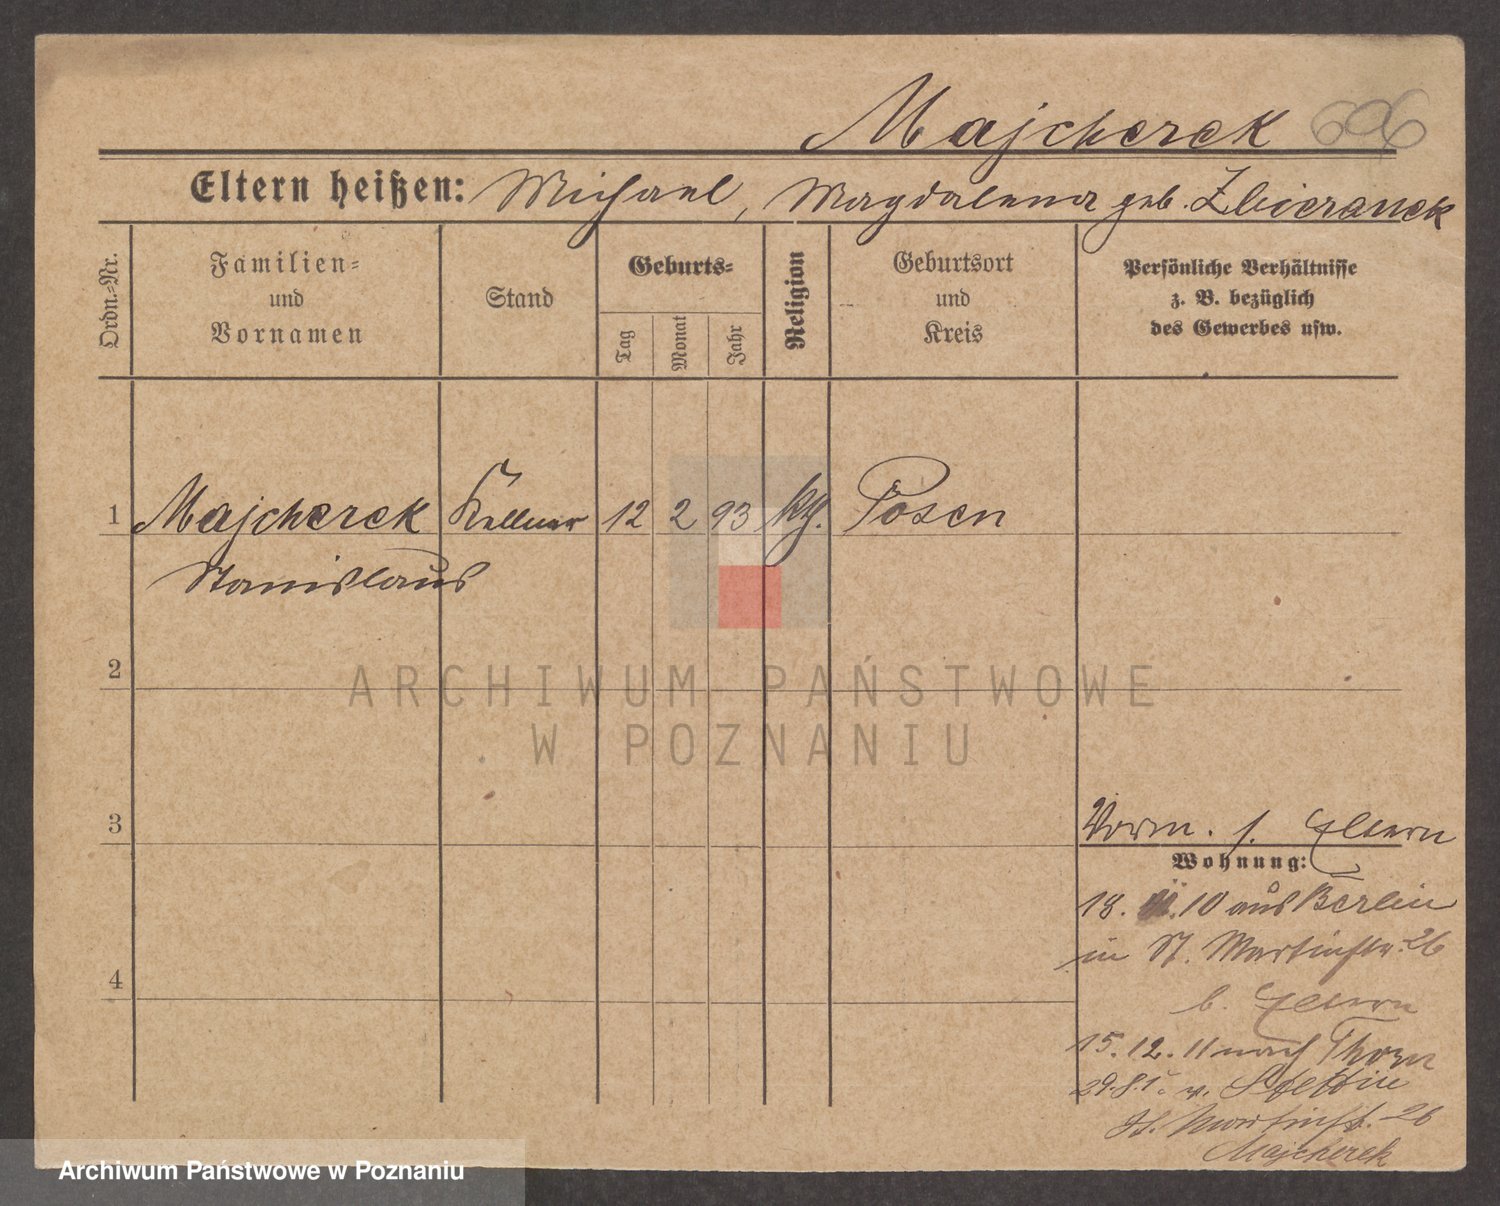 Majcherek 696
Eltern heißen: Michael, Magdalena geb. Zbieranek
Ordn.-Nr.
Familien-
und
Vornamen
Stand
Geburts-
Tag
Monat
Jahr
Religion
Geburtsort
und
Kreis
Persönliche Verhältnisse
z. B. bezüglich
des Gewerbes usw.
1 Majcherek Kellner 12 2 93 kth. Posen
Stanislaus
2
3
4
Vorm. s. Eltern
Wohnung:
18. 10 aus Berlin
in St. Martinstr. 26
b. Eltern
15.12.11 nach Thorn
29.8. v. Stettin
St. Martinstr. 26
Majcherek
ARCHIWUM PAŃSTWOWE
W POZNANIU
Archiwum Państwowe w Poznaniu